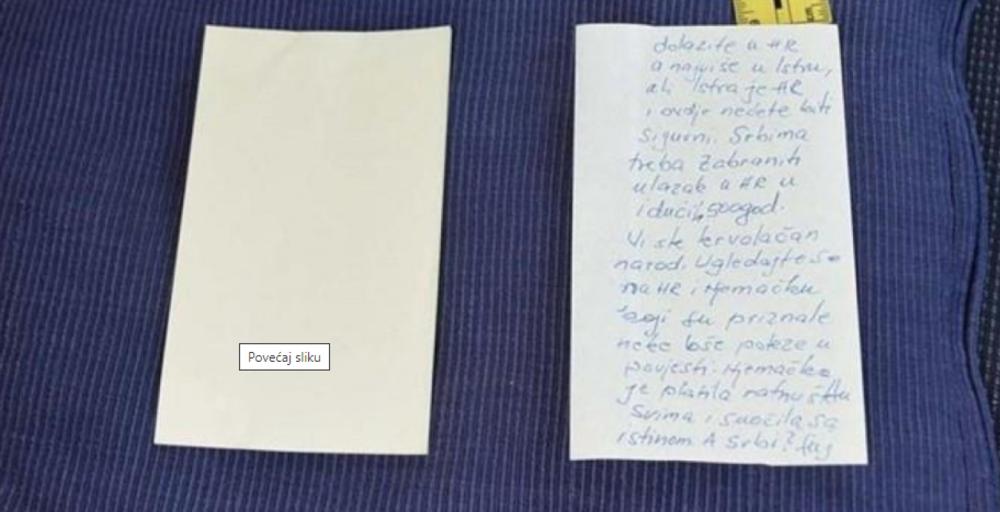 Povećaj sliku
dolazite u HR
a najviše u Istru,
ali Istra je HR
i ovdje nećete biti
sigurni. Srbima
treba zabraniti
ulazak u HR u
idućih 500 god.
Vi ste krvoločan
narod. Ugledajte se
na HR i Njemačku
koji su priznale
neke loše poteze u
povjesti. Njemačka
je platila ratnu štetu
svima i suočila sa
istinom A Srbi?